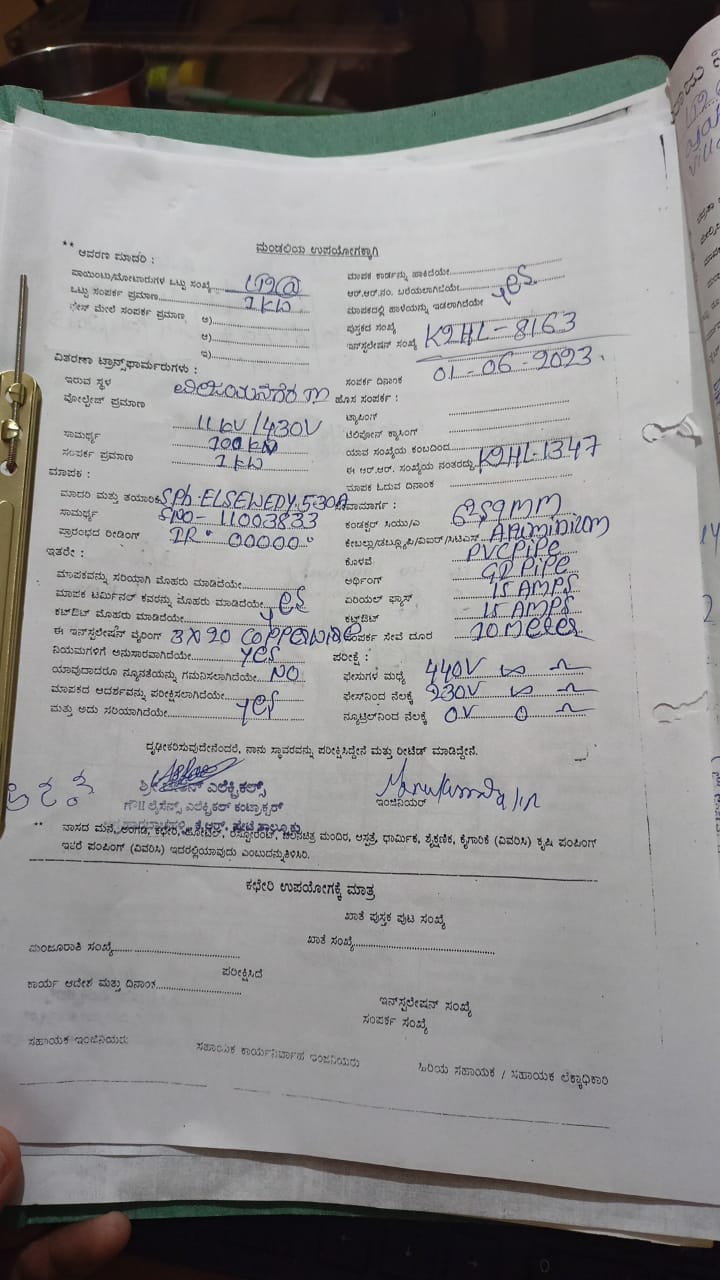 ಮಂಡಲಿಯ ಉಪಯೋಗಕ್ಕಾಗಿ
** ಆವರಣ ಮಾದರಿ :
ಪಾಯಿಂಟು/ಮೋಟಾರುಗಳ ಒಟ್ಟು ಸಂಖ್ಯೆ
ಒಟ್ಟು ಸಂಪರ್ಕ ಪ್ರಮಾಣ 1 KW
ಫೇಸ್ ಮೇಲೆ ಸಂಪರ್ಕ ಪ್ರಮಾಣ ಅ)
ಆ)
ಇ)
ವಿತರಣಾ ಟ್ರಾನ್ಸ್‌ಫಾರ್ಮರುಗಳು :
ಇರುವ ಸ್ಥಳ
ವೋಲ್ಟೇಜ್ ಪ್ರಮಾಣ 11KV/430V
ಸಾಮರ್ಥ್ಯ
ಸಂಪರ್ಕ ಪ್ರಮಾಣ 1 KW
ಮಾಪಕ :
ಮಾದರಿ ಮತ್ತು ತಯಾರಿಕೆ SPh: ELSEWEDY. 5.30A
ಸಾಮರ್ಥ್ಯ SNO - 11003833
ಪ್ರಾರಂಭದ ರೀಡಿಂಗ್ IR. 00000
ಇತರೇ :
ಮಾಪಕವನ್ನು ಸರಿಯಾಗಿ ಮೊಹರು ಮಾಡಿದೆಯೇ
ಮಾಪಕ ಟರ್ಮಿನಲ್ ಕವರನ್ನು ಮೊಹರು ಮಾಡಿದೆಯೇ yes
ಕಟ್‌ಔಟ್ ಮೊಹರು ಮಾಡಿದೆಯೇ
ಈ ಇನ್‌ಸ್ಟಲೇಷನ್ ವೈರಿಂಗ್ 3X20
ನಿಯಮಗಳಿಗೆ ಅನುಸಾರವಾಗಿದೆಯೇ yes
ಯಾವುದಾದರೂ ನ್ಯೂನತೆಯನ್ನು ಗಮನಿಸಲಾಗಿದೆಯೇ NO
ಮಾಪಕದ ಆದರ್ಶವನ್ನು ಪರೀಕ್ಷಿಸಲಾಗಿದೆಯೇ
ಮತ್ತು ಅದು ಸರಿಯಾಗಿದೆಯೇ yes
ಮಾಪಕ ಕಾರ್ಡನ್ನು ಹಾಕಿದೆಯೇ
ಆರ್.ಆರ್.ನಂ. ಬರೆಯಲಾಗಿದೆಯೇ yes
ಮಾಪಕದಲ್ಲಿ ಹಾಳೆಯನ್ನು ಇಡಲಾಗಿದೆಯೇ
ಪುಸ್ತಕದ ಸಂಖ್ಯೆ
ಇನ್‌ಸ್ಟಲೇಷನ್ ಸಂಖ್ಯೆ K2HL-8163
ಸಂಪರ್ಕ ದಿನಾಂಕ 01-06-2023
ಹೊಸ ಸಂಪರ್ಕ :
ಟ್ಯಾಪಿಂಗ್
ಟೆಲಿಫೋನ್ ಕ್ರಾಸಿಂಗ್
ಯಾವ ಸಂಖ್ಯೆಯ ಕಂಬದಿಂದ
ಈ ಆರ್.ಆರ್. ಸಂಖ್ಯೆಯ ನಂತರದ್ದು K2HL-1347
ಮಾಪಕ ಓದುವ ದಿನಾಂಕ
ಕಂಡಕ್ಟರ್ ಸಿಯು/ಎ
ಕೇಬಲ್ಲು/ಡಬ್ಲ್ಯೂಪಿ/ವಿಐಆರ್/ಸಿಟಿಎಸ್
ಕೊಳವೆ PVC PiPe
ಅರ್ಥಿಂಗ್ GI PiPe
ಏರಿಯಲ್ ಫ್ಯೂಸ್ 15 AMPS
ಕಟ್‌ಔಟ್ 15 AMPS
ಸಂಪರ್ಕ ಸೇವೆ ದೂರ 10 meter
ಪರೀಕ್ಷೆ :
ಫೇಸುಗಳ ಮಧ್ಯೆ 440V ∞ Ω
ಫೇಸ್‌ನಿಂದ ನೆಲಕ್ಕೆ 230V ∞ Ω
ನ್ಯೂಟ್ರಲ್‌ನಿಂದ ನೆಲಕ್ಕೆ 0V 0 Ω
ದೃಢೀಕರಿಸುವುದೇನೆಂದರೆ, ನಾನು ಸ್ಥಾವರವನ್ನು ಪರೀಕ್ಷಿಸಿದ್ದೇನೆ ಮತ್ತು ರೀಟೆಡ್ ಮಾಡಿದ್ದೇನೆ.
ಎಲೆಕ್ಟ್ರಿಕಲ್ಸ್
ಲೈಸೆನ್ಸ್ ಎಲೆಕ್ಟ್ರಿಕಲ್ ಕಂಟ್ರಾಕ್ಟರ್
ಇಂಜಿನಿಯರ್
** ವಾಸದ ಮನೆ, ಅಂಗಡಿ, ಕಛೇರಿ, ಹೋಟೆಲ್, ರೆಸ್ಟೋರೆಂಟ್, ಚಲನಚಿತ್ರ ಮಂದಿರ, ಆಸ್ಪತ್ರೆ, ಧಾರ್ಮಿಕ, ಶೈಕ್ಷಣಿಕ, ಕೈಗಾರಿಕೆ (ವಿವರಿಸಿ) ಕೃಷಿ ಪಂಪಿಂಗ್
ಇತರೆ ಪಂಪಿಂಗ್ (ವಿವರಿಸಿ) ಇದರಲ್ಲಿಯಾವುದು ಎಂಬುದನ್ನುತಿಳಿಸಿರಿ.
ಕಛೇರಿ ಉಪಯೋಗಕ್ಕೆ ಮಾತ್ರ
ಖಾತೆ ಪುಸ್ತಕ ಪುಟ ಸಂಖ್ಯೆ
ಮಂಜೂರಾತಿ ಸಂಖ್ಯೆ
ಖಾತೆ ಸಂಖ್ಯೆ
ಪರೀಕ್ಷಿಸಿದೆ
ಕಾರ್ಯ ಆದೇಶ ಮತ್ತು ದಿನಾಂಕ
ಇನ್‌ಸ್ಟಲೇಷನ್ ಸಂಖ್ಯೆ
ಸಂಪರ್ಕ ಸಂಖ್ಯೆ
ಸಹಾಯಕ ಇಂಜಿನಿಯರು
ಸಹಾಯಕ ಕಾರ್ಯನಿರ್ವಾಹ ಇಂಜನಿಯರು
ಹಿರಿಯ ಸಹಾಯಕ / ಸಹಾಯಕ ಲೆಕ್ಕಾಧಿಕಾರಿ